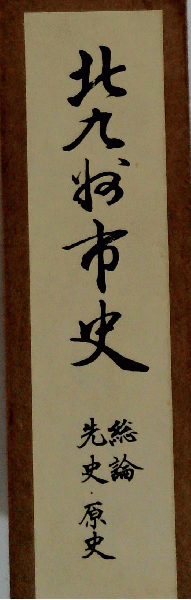 北九州市史
総論
先史・原史